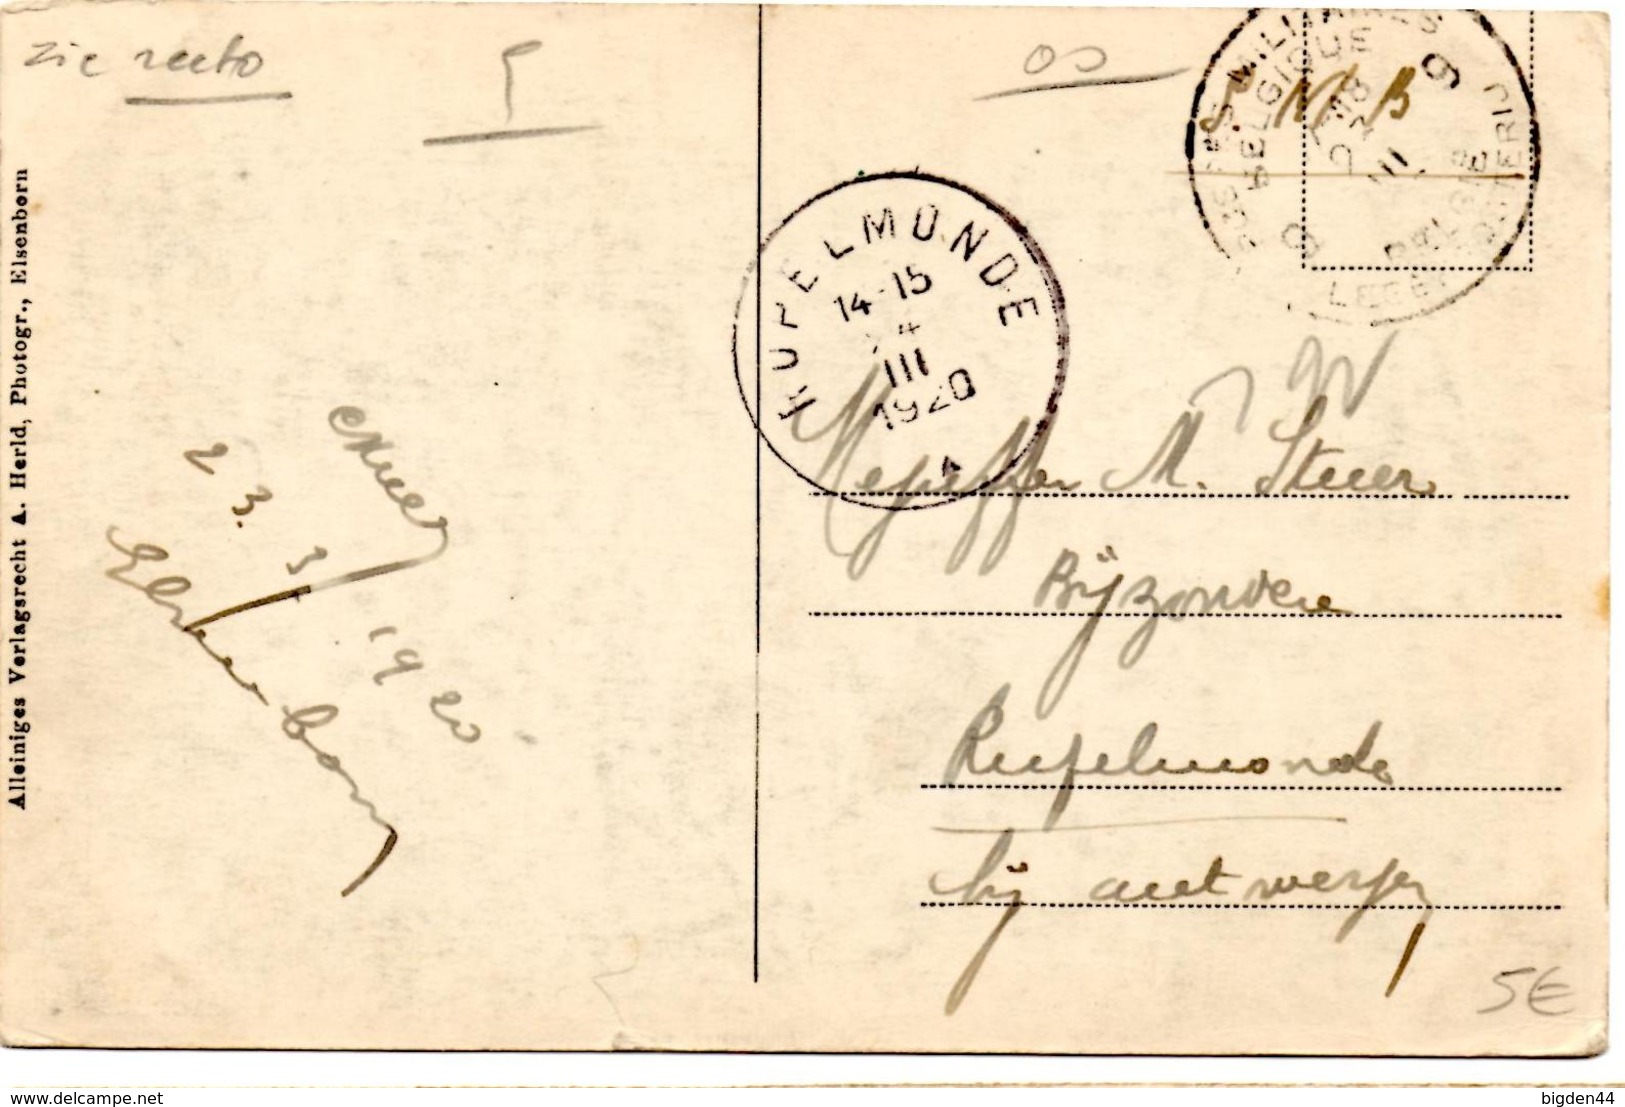 zie recto
5
Alleiniges Verlagsrecht A. Herld, Photogr., Elsenborn
23. 3/1920
Elsenborn
POSTES MILITAIRES
BELGIQUE
9
18
III
BELGIË
LEGERPOSTERIJ
9
S. M. B
RUPELMONDE
14-15
III
1920
Mejuffer M. Steers
Bijzondere
Rupelmonde
bij antwerpen
5€
www.delcampe.net
bigden44